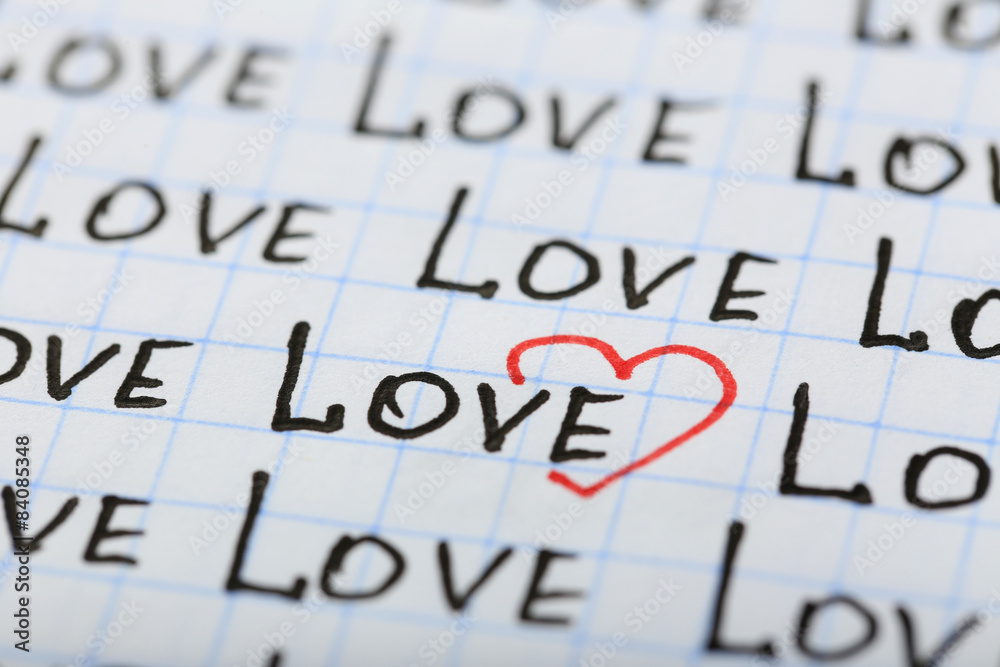 LO
LOVE LOVE LOV
LOVE LOVE LO
OVE LOVE LO
VE LOVE LOV
Adobe Stock | #84085348